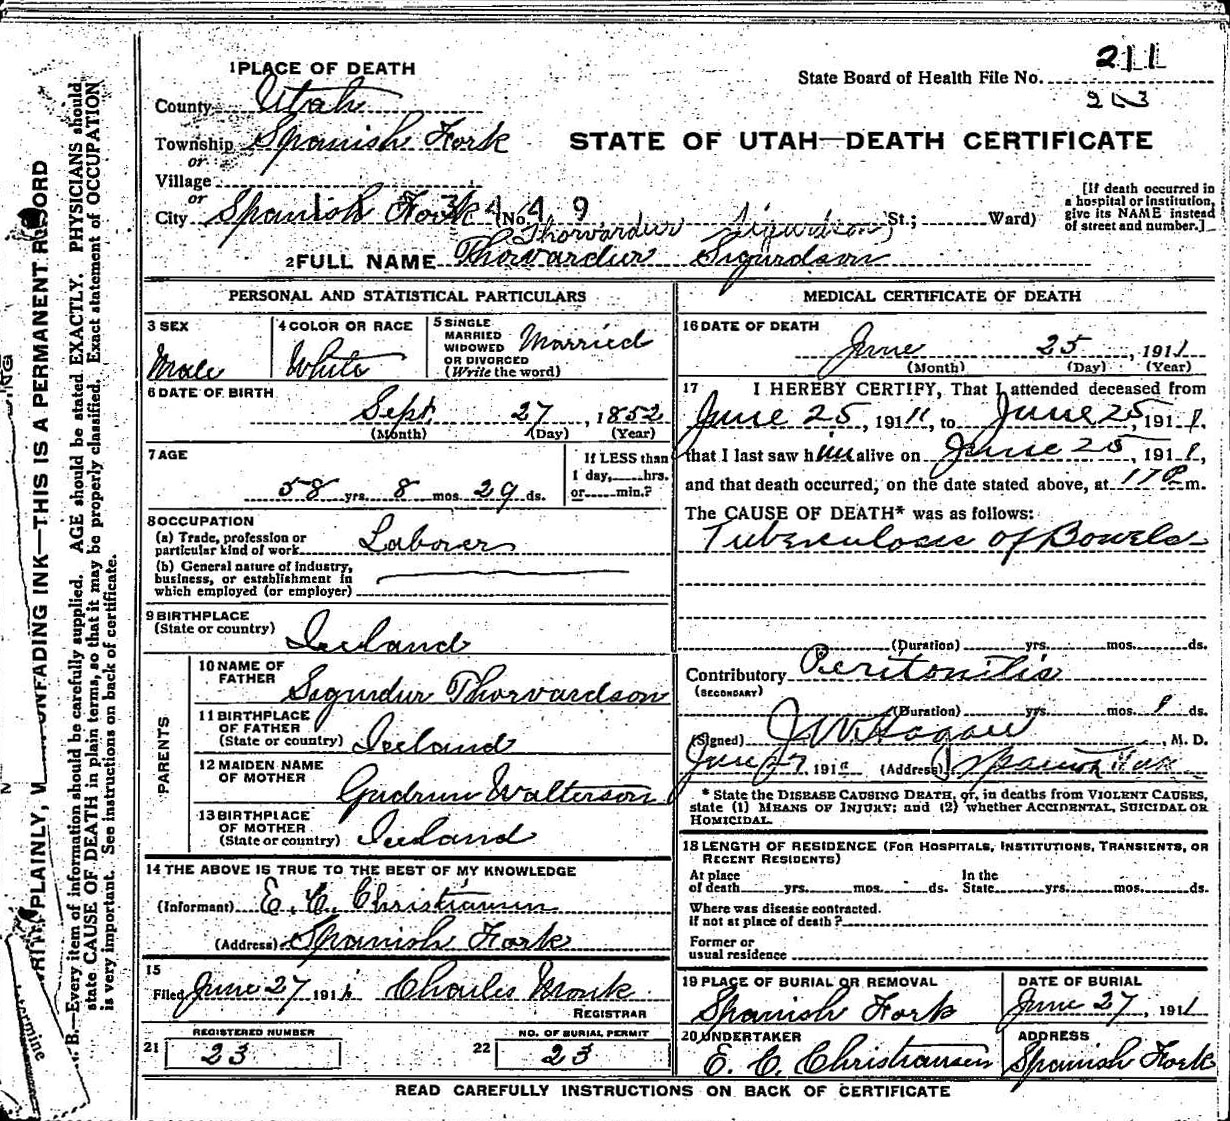 211
State Board of Health File No.
203
1 PLACE OF DEATH
County Utah
Township Spanish Fork
or
Village
or
City Spanish Fork No. St.; Ward)
STATE OF UTAH—DEATH CERTIFICATE
[If death occurred in
a hospital or institution,
give its NAME instead
of street and number.]
Thorvardur Sigurdson
2 FULL NAME Thorvardur Sigurdson
PERSONAL AND STATISTICAL PARTICULARS
3 SEX
Male
4 COLOR OR RACE
White
5 SINGLE
MARRIED
WIDOWED
OR DIVORCED
(Write the word)
Married
6 DATE OF BIRTH
Sept 27, 1852
(Month) (Day) (Year)
7 AGE
58 yrs. 8 mos. 29 ds.
If LESS than
1 day, hrs.
or min.?
8 OCCUPATION
(a) Trade, profession or
particular kind of work Laborer
(b) General nature of industry,
business, or establishment in
which employed (or employer)
9 BIRTHPLACE
(State or country) Iceland
PARENTS
10 NAME OF
FATHER Sigurdur Thorvardson
11 BIRTHPLACE
OF FATHER
(State or country) Iceland
12 MAIDEN NAME
OF MOTHER Gudrun Walterson
13 BIRTHPLACE
OF MOTHER
(State or country) Iceland
14 THE ABOVE IS TRUE TO THE BEST OF MY KNOWLEDGE
(Informant) E. C. Christiansen
(Address) Spanish Fork
15
Filed June 27 191 Charles Monk
REGISTRAR
REGISTERED NUMBER
21 23
NO. OF BURIAL PERMIT
22 23
MEDICAL CERTIFICATE OF DEATH
16 DATE OF DEATH
June 25, 1911
(Month) (Day) (Year)
17 I HEREBY CERTIFY, That I attended deceased from
June 25, 1911, to June 25, 1911,
that I last saw him alive on June 25, 1911,
and that death occurred, on the date stated above, at m.
The CAUSE OF DEATH* was as follows:
Tuberculosis of Bowels
(Duration) yrs. mos. ds.
Contributory Peritonitis
(SECONDARY)
(Duration) yrs. mos. ds.
(Signed) J. W. Hagan, M. D.
June 27, 191 (Address) Spanish Fork
* State the DISEASE CAUSING DEATH, or, in deaths from VIOLENT CAUSES,
state (1) MEANS OF INJURY; and (2) whether ACCIDENTAL, SUICIDAL OR
HOMICIDAL.
18 LENGTH OF RESIDENCE (FOR HOSPITALS, INSTITUTIONS, TRANSIENTS, OR
RECENT RESIDENTS)
At place
of death yrs. mos. ds.
In the
State yrs. mos. ds.
Where was disease contracted.
if not at place of death?
Former or
usual residence
19 PLACE OF BURIAL OR REMOVAL
Spanish Fork
DATE OF BURIAL
June 27, 1911
20 UNDERTAKER
E. C. Christiansen
ADDRESS
Spanish Fork
READ CAREFULLY INSTRUCTIONS ON BACK OF CERTIFICATE
PLAINLY, UNFADING INK—THIS IS A PERMANENT RECORD
B.—Every item of information should be carefully supplied. AGE should be stated EXACTLY. PHYSICIANS should
state CAUSE OF DEATH in plain terms, so that it may be properly classified. Exact statement of OCCUPATION
is very important. See instructions on back of certificate.